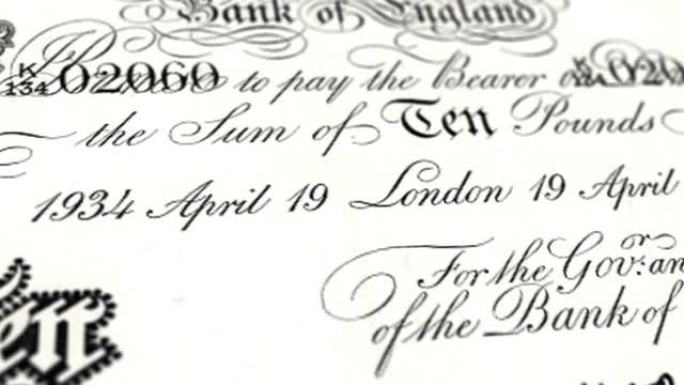 Bank of England
K/134 02060 to pay the Bearer
the Sum of Ten Pounds
1934 April 19 London 19 April
For the Gov.or: an
of the Bank of